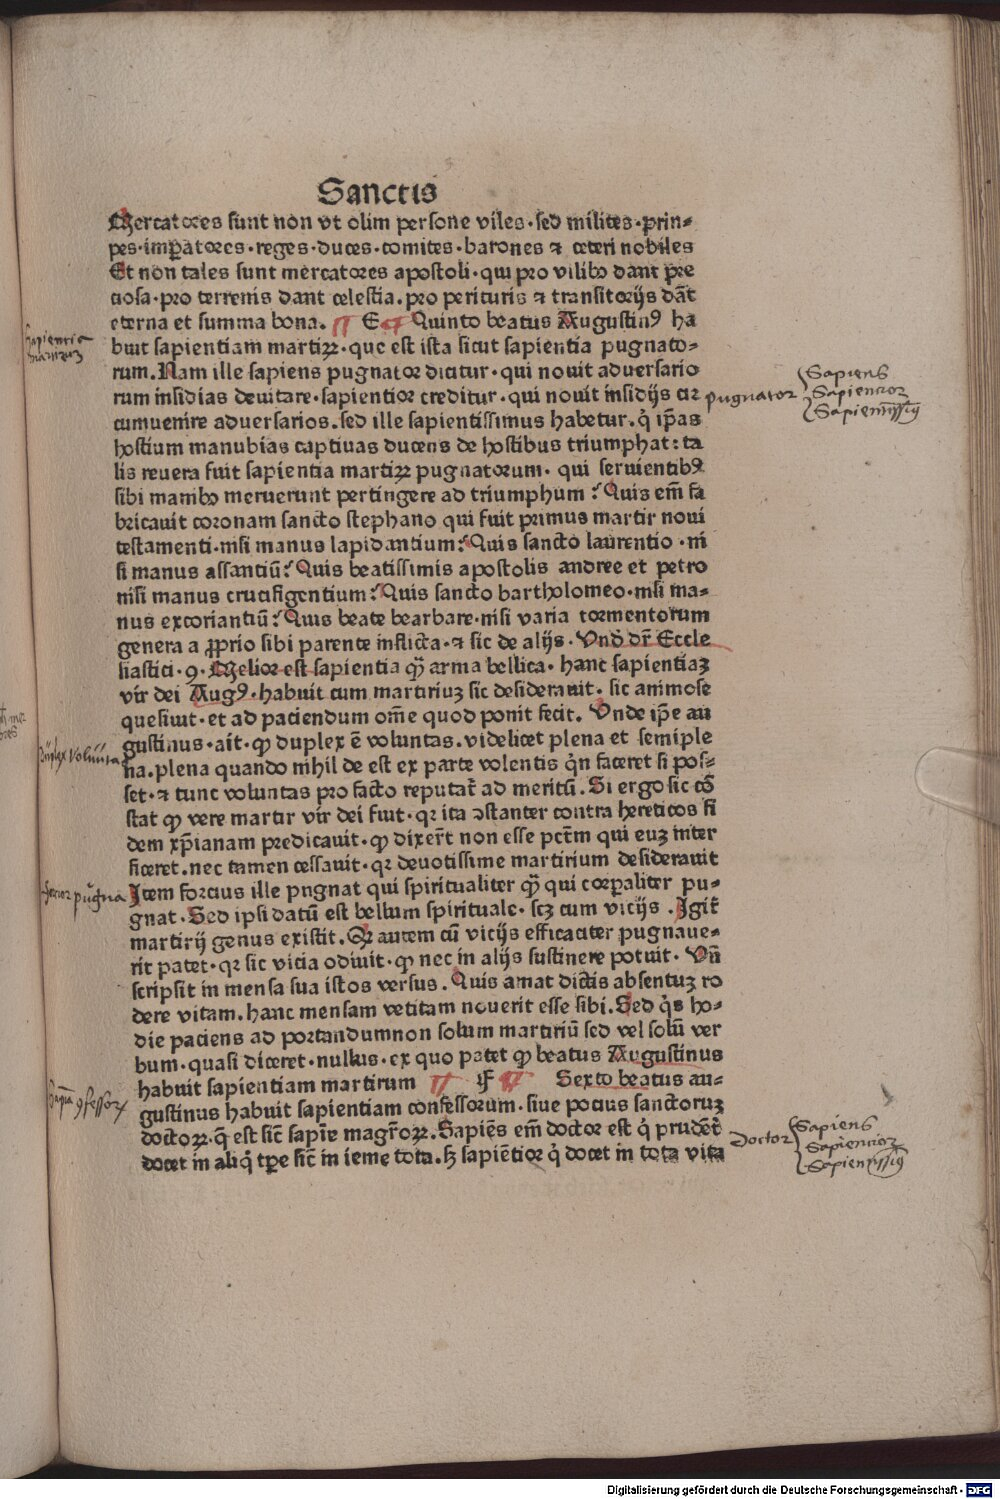 Sanctis
Mercatores sunt non vt olim persone viles·sed milites·prin⸗
pes·imꝑatores·reges·duces·comites·barones ⁊ ceteri nobiles
Et non tales sunt mercatores apostoli·qui pro vilibꝰ dant p̄re
ciosa·pro terrenis dant celestia.pro perituris ⁊ transitorijs dāt
eterna et summa bona. ¶ E ¶ Quinto beatus Augustinꝰ ha
buit sapientiam martiꝝ·que est ista sicut sapientia pugnato⸗
rum.Nam ille sapiens pugnator dicitur·qui nouit aduersario
rum insidias deuitare·sapientior creditur·qui nouit insidijs cir
cumuenire aduersarios.sed ille sapientissimus habetur.q̇ ip̄as
hostium manubias captiuas ducens de hostibus triumphat:ta
lis reuera fuit sapientia martiꝝ pugnatorum· qui seruientibꝰ
sibi manibꝰ meruerunt pertingere ad triumphum? Quis em̄ fa
bricauit coronam sancto stephano qui fuit primus martir noui
testamenti·nisi manus lapidantium? Quis sancto laurentio ·ni
si manus assantiū? Quis beatissimis apostolis andree et petro
nisi manus crucifigentium? Quis sancto bartholomeo·nisi ma⸗
nus excoriantiū? Quis beate bearbare·nisi varia tormentorum
genera a ꝓprio sibi parente inflicta·⁊ sic de alijs· Vnd̄ dr̄ Eccle
siastici·9· Melior est sapientia q̄ꝫ arma bellica· hanc sapientiaꝫ
vir dei Augꝰ·habuit cum martiriuꝫ sic desiderauit· sic animose
quesiuit·et ad paciendum om̄e quod ponit fecit. Vnde ip̄e au
gustinus·ait·ꝙ duplex ē voluntas.videlicet plena et semiple
na.plena quando nihil de est ex parte volentis q̇n faceret si pos⸗
set·⁊ tunc voluntas pro facto reputat̄ ad meritū. Si ergo sic cō
stat ꝙ vere martir vir dei fuit·qꝛ ita ꝯstanter contra hereticos fi
dem xp̄ianam predicauit·ꝙ dixer̄t non esse pct̄m qui euꝫ inter
ficeret.nec tamen cessauit·qꝛ deuotissime martirium desiderauit
Item forcius ille pugnat qui spiritualiter q̄ꝫ qui corꝑaliter pu⸗
gnat·Sed ipsi datū est bellum spirituale·scꝫ cum vicijs .Igit̄
martirij genus existit.Qꝛ autem cū vicijs efficaciter pugnaue⸗
rit patet·qꝛ sic vicia odiuit·ꝙ nec in alijs sustinere potuit· Vn̄
scripsit in mensa sua istos versus. Quis amat dictis absentuꝫ ro
dere vitam.hanc mensam vetitam nouerit esse sibi.Sed q̇s ho⸗
die paciens ad portandumnon solum martiriū sed vel solū ver
bum·quasi diceret·nullus·ex quo patet ꝙ beatus Augustinus
habuit sapientiam martirum ¶ F ¶ Sexto beatus au⸗
gustinus habuit sapientiam confessorum·siue pocius sanctoruꝫ
doctoꝝ·q̄ est sic̄ sapīe magr̄oꝝ.Sapiēs em̄ doctor est q̇ prudēt̄
docet in aliq̇ tp̄e sic̄ in ieme tota.hꝫ sapiētior q̇ docet in tota vita
Sapientia
martirum
pugnator
Sapiens
Sapiencior
Sapientissimꝰ
Duplex voluntas
forcior pugna
Sapīa ꝯfessorꝝ
Doctor
Sapiens
Sapiencior
Sapientissimꝰ
Digitalisierung gefördert durch die Deutsche Forschungsgemeinschaft · DFG